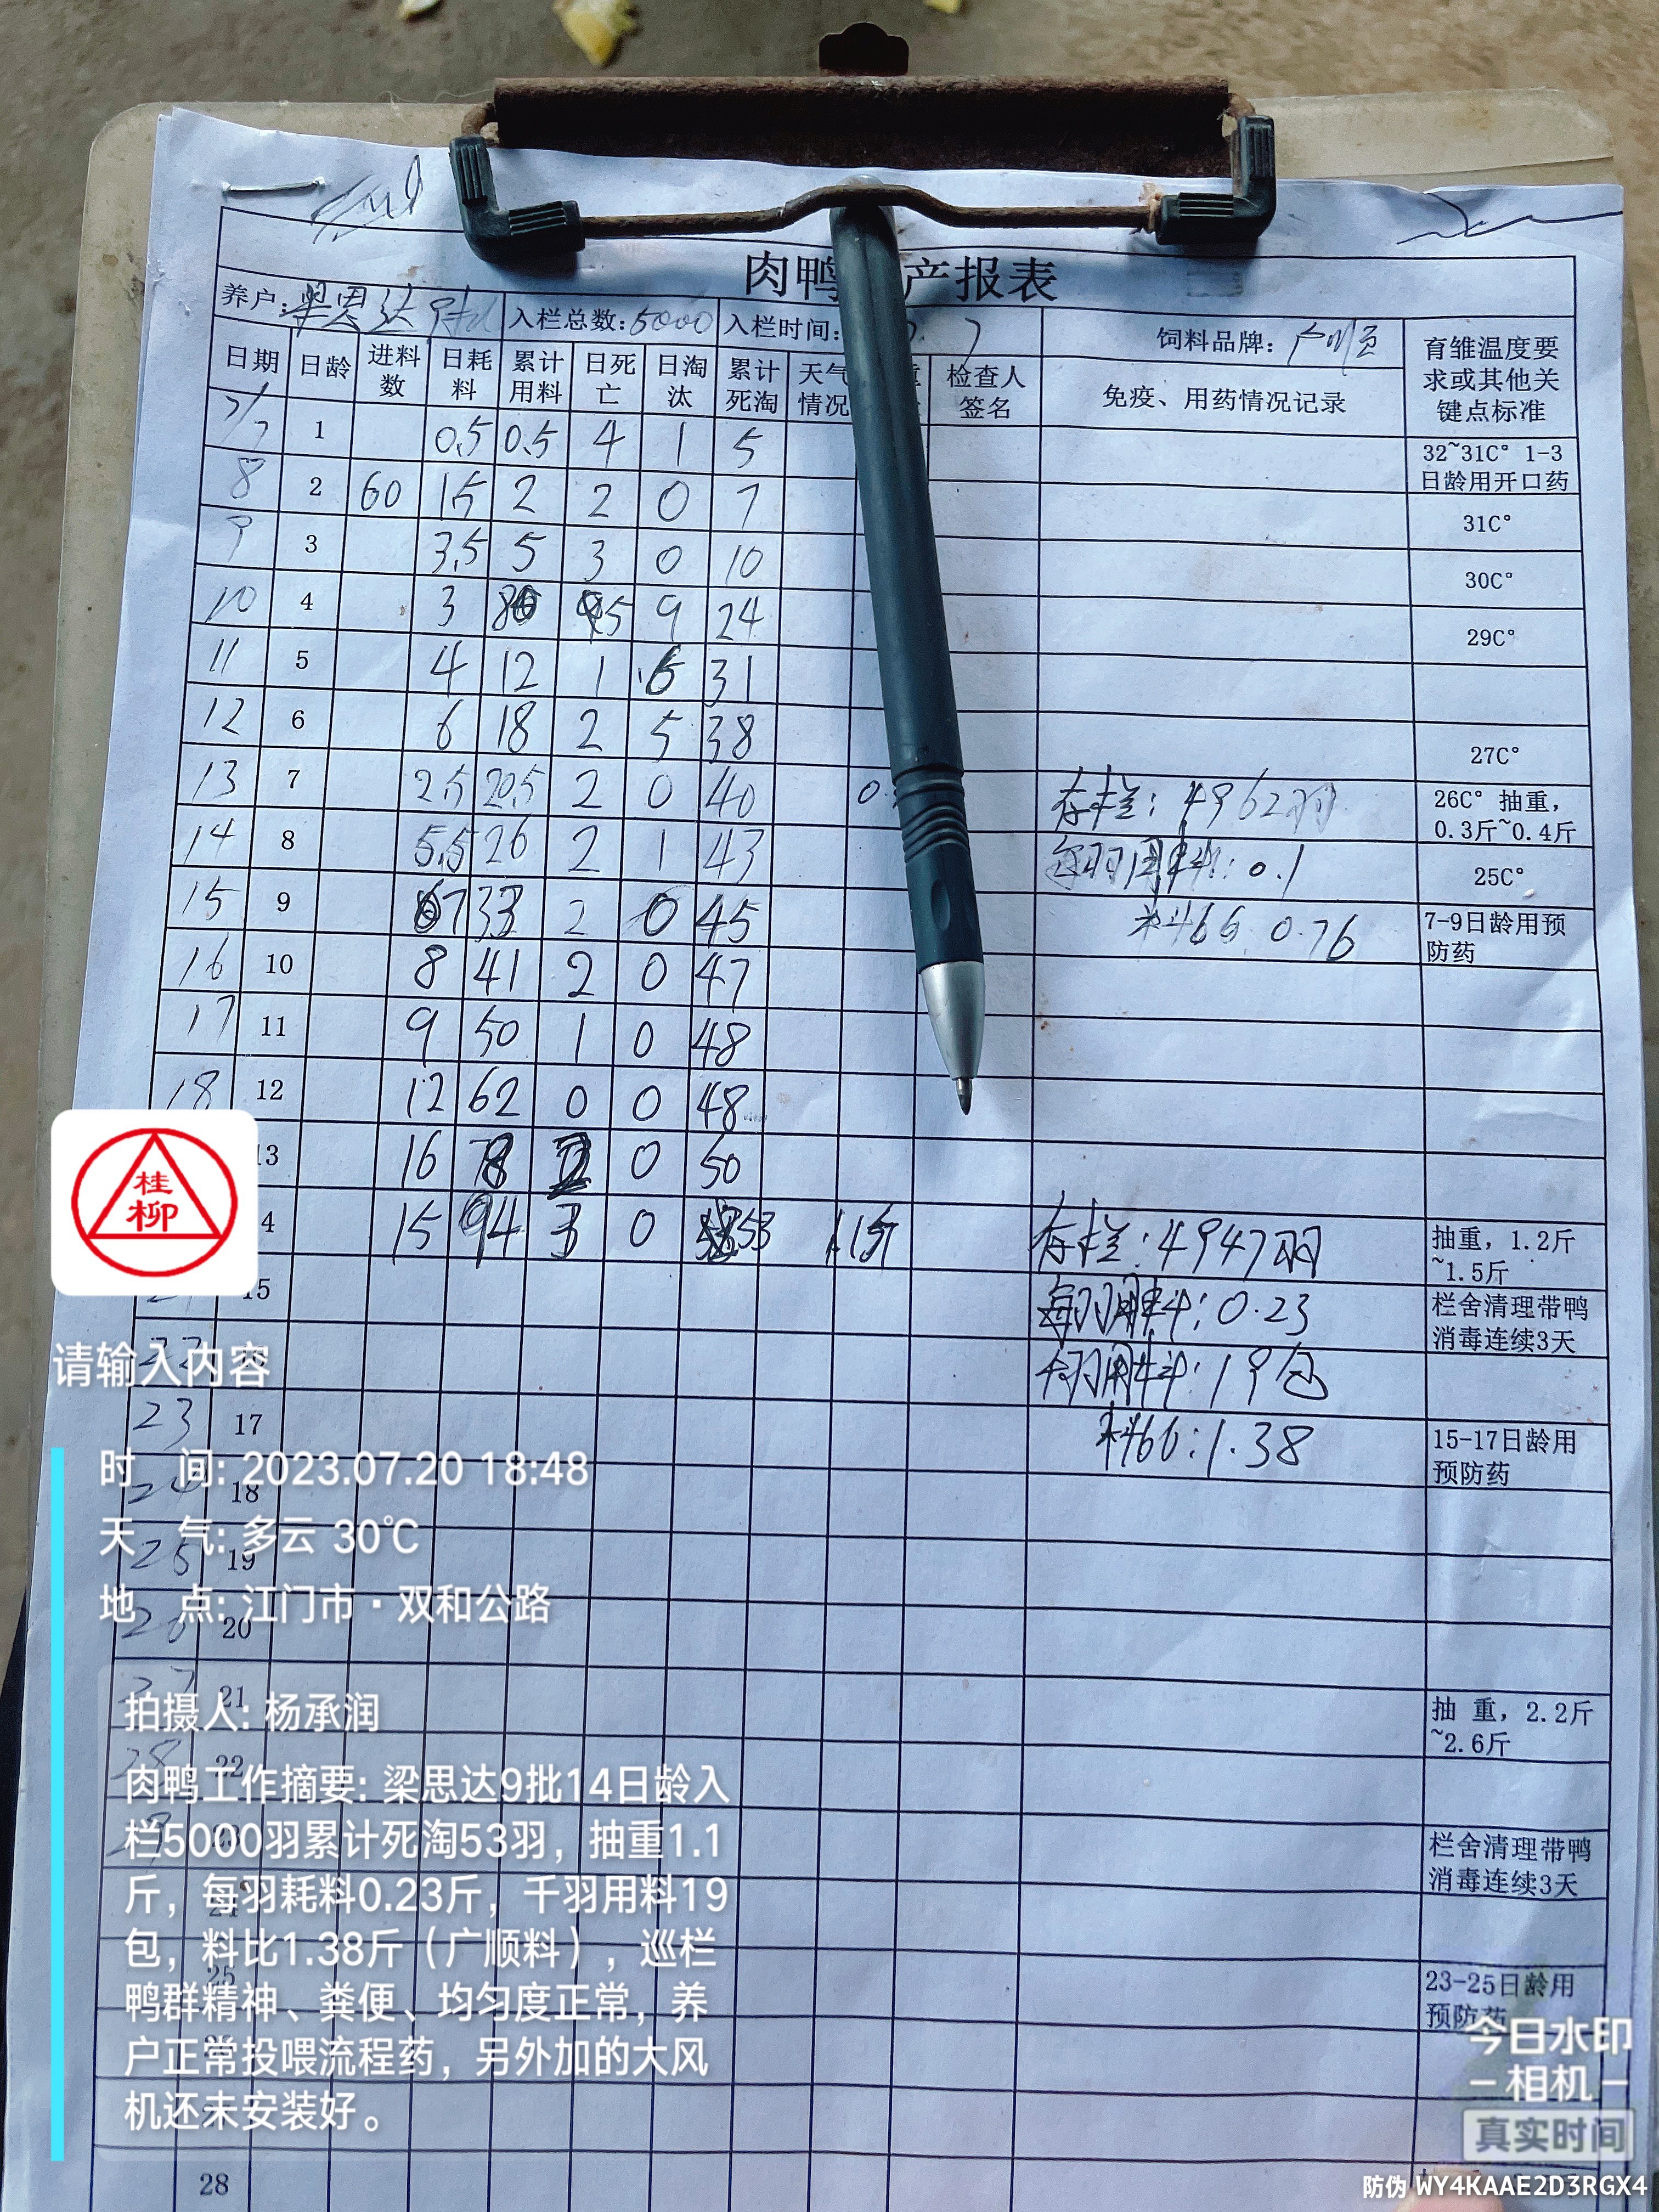 肉鸭 产报表
养户: 梁思达 入栏总数: 5000 入栏时间: 7 饲料品牌: 育雏温度要求或其他关键点标准
日期 日龄 进料数 日耗料 累计用料 日死亡 日淘汰 累计死淘 天气情况 检查人签名 免疫、用药情况记录
7/7 1 0.5 0.5 4 1 5 32~31C° 1-3日龄用开口药
8 2 60 1.5 2 2 0 7 31C°
9 3 3.5 5 3 0 10 30C°
10 4 3 8 5 9 24 29C°
11 5 4 12 1 6 31
12 6 6 18 2 5 38 27C°
13 7 2.5 20.5 2 0 40 0. 存栏: 4962羽 26C° 抽重，0.3斤~0.4斤
14 8 5.5 26 2 1 43 每羽用料: 0.1 25C°
15 9 7 33 2 0 45 料比: 0.76 7-9日龄用预防药
16 10 8 41 2 0 47
17 11 9 50 1 0 48
18 12 12 62 0 0 48
13 16 78 2 0 50
4 15 94 3 0 53 1.1斤 存栏: 4947羽 抽重，1.2斤~1.5斤
15 每羽用料: 0.23 栏舍清理带鸭消毒连续3天
22 千羽用料: 19包
23 17 料比: 1.38 15-17日龄用预防药
24 18
25 19
26 20
27 21 抽 重，2.2斤~2.6斤
28 22
23 栏舍清理带鸭消毒连续3天
25 23-25日龄用预防药
28
桂柳
请输入内容
时 间: 2023.07.20 18:48
天 气: 多云 30℃
地 点: 江门市·双和公路
拍摄人: 杨承润
肉鸭工作摘要: 梁思达9批14日龄入
栏5000羽累计死淘53羽，抽重1.1
斤，每羽耗料0.23斤，千羽用料19
包，料比1.38斤（广顺料），巡栏
鸭群精神、粪便、均匀度正常，养
户正常投喂流程药，另外加的大风
机还未安装好。
今日水印
相机
真实时间
防伪 WY4KAAE2D3RGX4